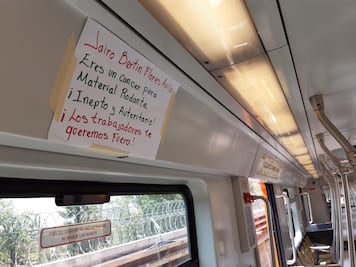 Jairo Bertin Flores Avila
Eres un cancer para
Material Rodante.
¡Inepto y Autoritario!
¡Los trabajadores te
queremos Fuera!